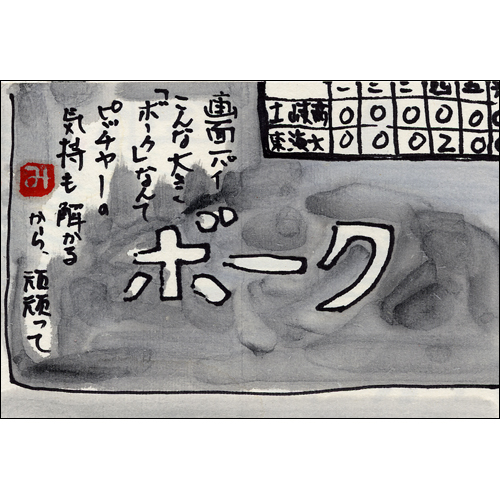 一 二 三 四 五
土岐商 0 0 0 0 0
東海大 0 0 0 2 0
画面パイ
こんな大き
「ボーク」なんて
ピッチャーの
気持も解かる
から、頑頑って
み
ボーク